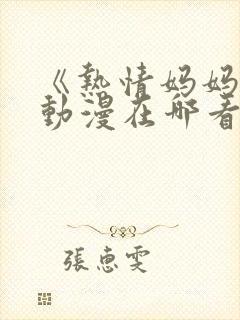 《熱情妈妈
動漫在哪看
張恵雯